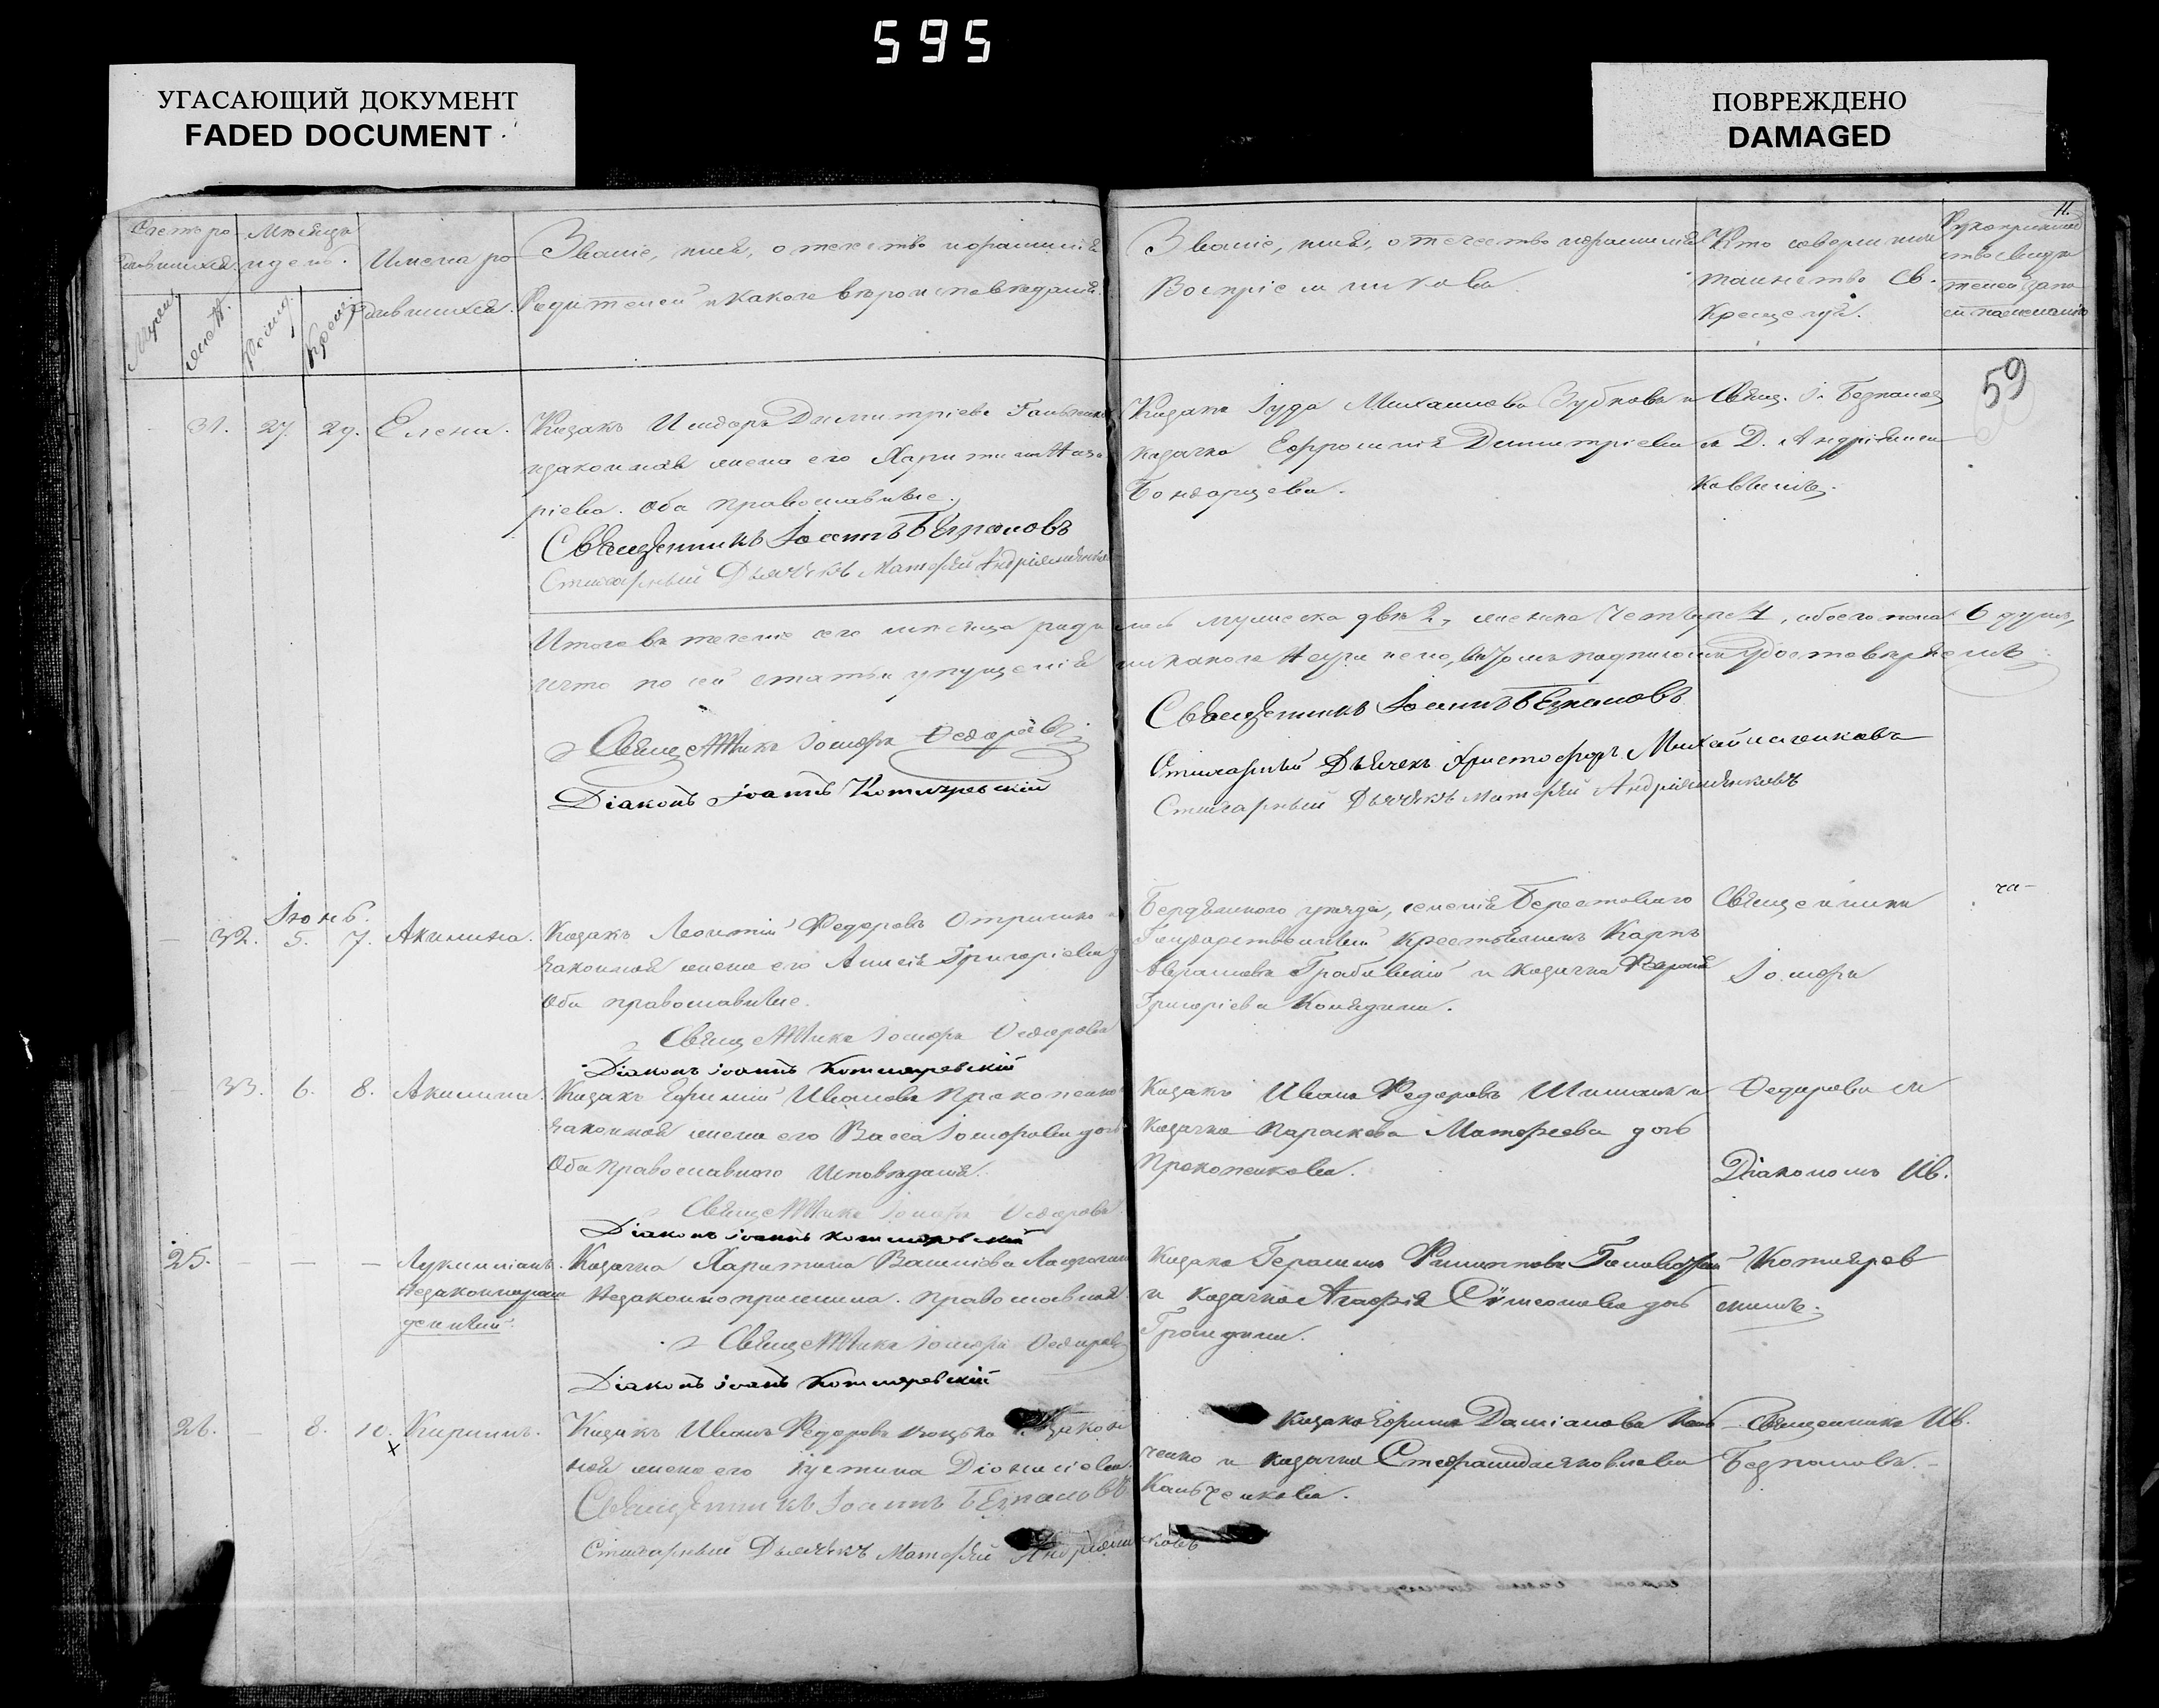 595
УГАСАЮЩИЙ ДОКУМЕНТ
FADED DOCUMENT
ПОВРЕЖДЕНО
DAMAGED
11.
Счетъ ро
дившихся.
Мѣсяцъ
и день.
Имена ро
дившихся.
Званіе, имя, отечество и фамилія
Родителей и какого вѣроисповѣданія.
Званіе, имя, отечество и фамилія
Воспріемниковъ.
Кто совершилъ
таинство Св.
Крещенія.
Рукоприклад
ство свидѣ
телей запи
си по желанію
59
31. 27. 29. Елена.
Козакъ Исидоръ Димитріевъ
и законная жена его Харитина Наза
ріева. Оба православные.
Священникъ Іоаннъ Безпаловъ
Стихарный Дьячекъ Матфей Андріяшенковъ
Козакъ Іуда Михаиловъ Зубковъ и
казачка Ефросинія Димитріева
Бондарцева.
Свящ. І. Безпалов
и Д. Андріяшен
ковымъ.
Итого въ теченіе сего мѣсяца роди лось мужеска два 2, женска Четыре 4, обоего пола 6 душъ,
что по сей статьи упущенія никакого неучинено, въ томъ подписомъ удостовѣряемъ.
Священникъ Іосифъ Федоровъ
Діаконъ Іоаннъ Котляревскій
Священникъ Іоаннъ Безпаловъ
Стихарный Дьячекъ Христофоръ Михайличенковъ
Стихарный Дьячекъ Матфей Андріяшенковъ
Іюнь.
32. 5. 7. Акилина.
Козакъ Леонтій Федоровъ Отришко и
законная жена его Анисія Григоріева
Оба православные.
Священникъ Іосифъ Федоровъ
Діаконъ Іоаннъ Котляревскій
Бердянского уѣзда, селенія Берестоваго
Государственный крестьянинъ Карпъ
Аврамовъ Грабовскій и козачка
Григоріева
Священникъ
Іосифъ
33. 6. 8. Акилина.
Козакъ Ефимій Ивановъ Прокопенко
законная жена его Васса Іосифова дочь
Оба православного исповѣданія.
Священникъ Іосифъ Федоровъ
Діаконъ Іоаннъ Котляревскій
Козакъ Иванъ Федоровъ Шишкинъ и
козачка Параскева Матфеева дочь
Прокопенкова.
Федоровъ съ
Діакономъ Ив.
25. Лукилліанъ.
Незаконнорож
денный.
Козачка Харитина Василіева
Незаконноприжила. Православная
Священникъ Іосифъ Федоровъ
Діаконъ Іоаннъ Котляревскій
Козакъ Герасимъ Филипповъ Головатый
и козачка Агафія Сѵмеонова дочь
Котлярев
скимъ.
26. 8. 10. Кириллъ.
Козакъ Иванъ Федоровъ Коцько и закон
ная жена его Іустина Діонисіева.
Священникъ Іоаннъ Безпаловъ
Стихарный Дьячекъ Матфей Андріяшенковъ
Козакъ Ефимъ Даміановъ
ченко и козачка Стефанида Яковлева
Священникъ Ив.
Безпаловъ.